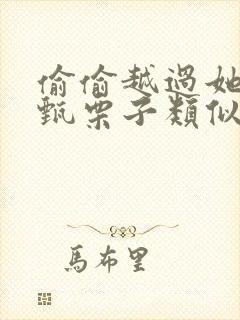 偷偷越過她
甄栗子類似
馬布里